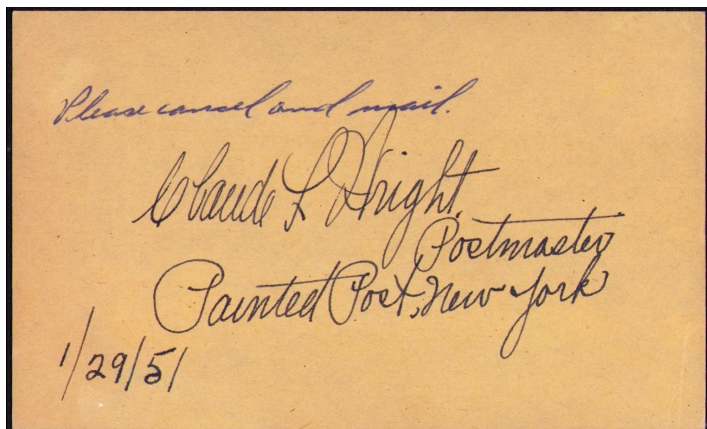 Please cancel and mail.
Claude L Wright
Postmaster
Painted Post, New York
1/29/51